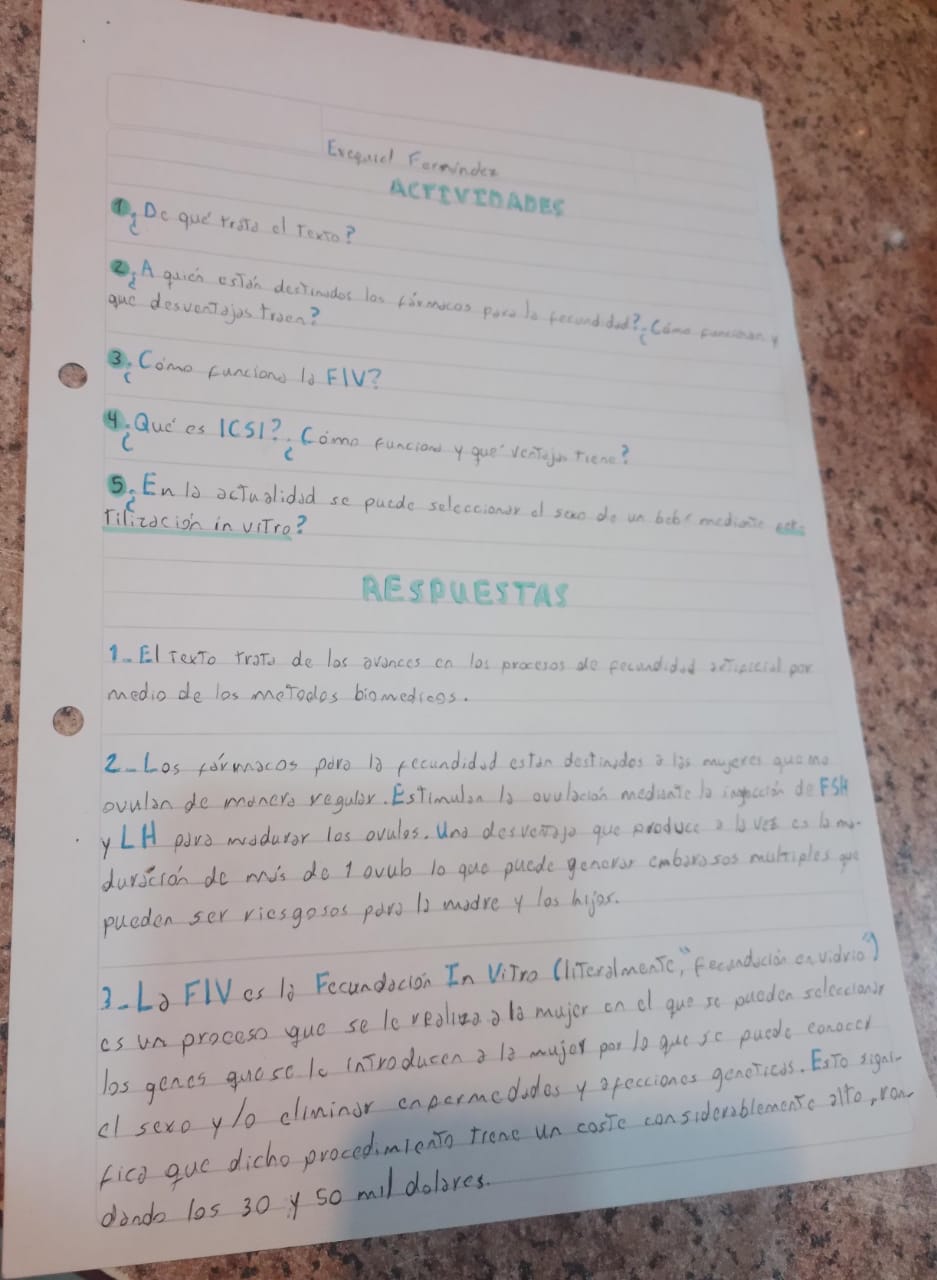 Exequiel Fernández
ACTIVIDADES
1¿De qué trata el texto?
2¿A quién están destinados los fármacos para la fecundidad?¿Cómo funcionan y
que desventajas traen?
3¿Cómo funciona la FIV?
4¿Qué es ICSI?¿Cómo funciona y que ventajas tiene?
5¿En la actualidad se puede seleccionar el sexo de un bebé mediante esta
tilización in vitro?
RESPUESTAS
1-El texto trata de los avances en los procesos de fecundidad artificial por
medio de los metodos biomedicos.
2-Los fármacos para la fecundidad estan destinados a las mujeres que no
ovulan de manera regular. Estimulan la ovulación mediante la inyección de FSH
y LH para madurar los ovulos. Una desventaja que produce a la vez es la ma-
duración de más de 1 ovulo lo que puede generar embarasos multiples que
pueden ser riesgosos para la madre y los hijos.
3-La FIV es la Fecundación In Vitro (literalmente, "fecundación en vidrio")
es un proceso que se le realiza a la mujer en el que se pueden seleccionar
los genes que se le introducen a la mujer por lo que se puede conocer
el sexo y/o eliminar enfermedades y afecciones geneticas. Esto signi-
fica que dicho procedimiento tiene un coste considerablemente alto, ron-
dando los 30 y 50 mil dolares.